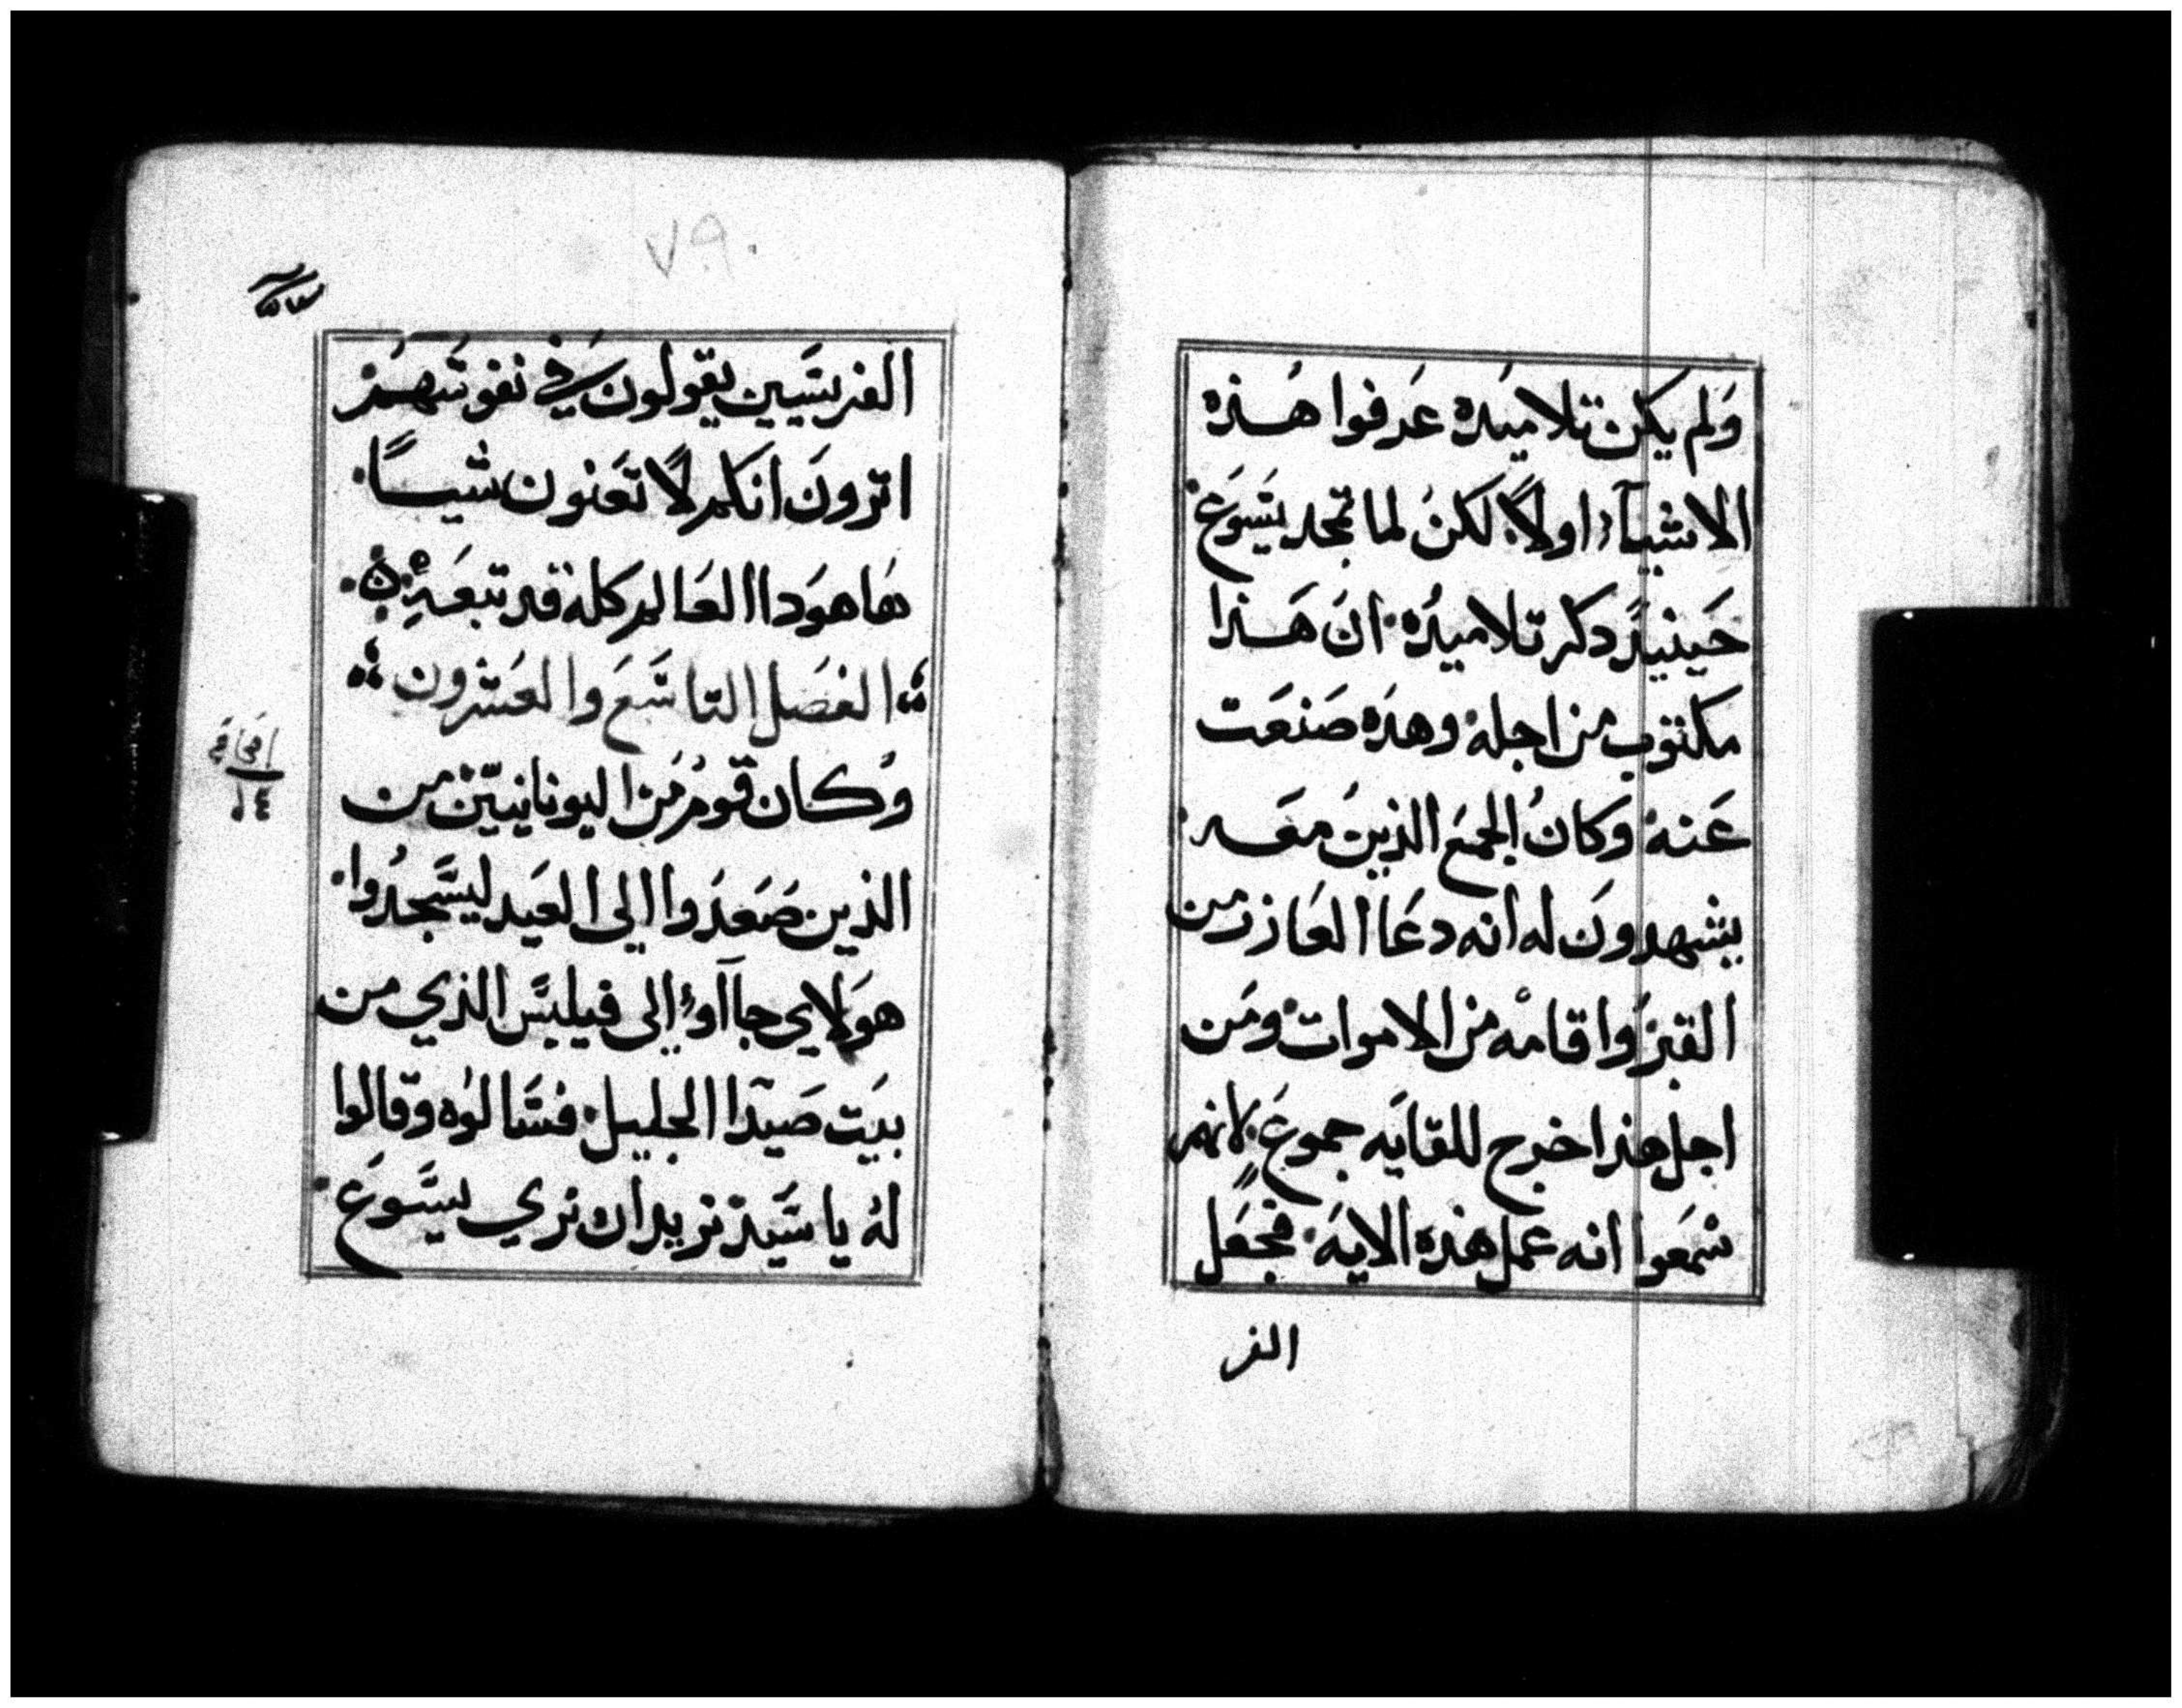 ولم يكن تلاميده عرفوا هذه
الاشيآء اولاً لكن لما تمجد يسوع
حينيذ دكر تلاميده ان هذا
مكتوب من اجله وهده صنعت
عنه وكان الجمع الذين معه
يشهدون له انه دعا العازر من
القبر واقامه من الاموات ومن
اجل هذا خرج للقايه جموع لانهم
سمعوا انه عمل هذه الايه فجعل
الفر
٧٩
الفريسيين يقولون في نفوسهم
اترون انكم لا تعنون شيساً
هاهودا العالم كله قد تبعه
الفصل التاسع والعشرون
وكان قوم من اليونانيين من
الذين صعدوا الى العيد ليسجدوا
هولاي جاآوا الى فيلبس الذي من
بيت صيدا الجليل فسالوه وقالوا
له يا سيد نريد ان نري يسوع